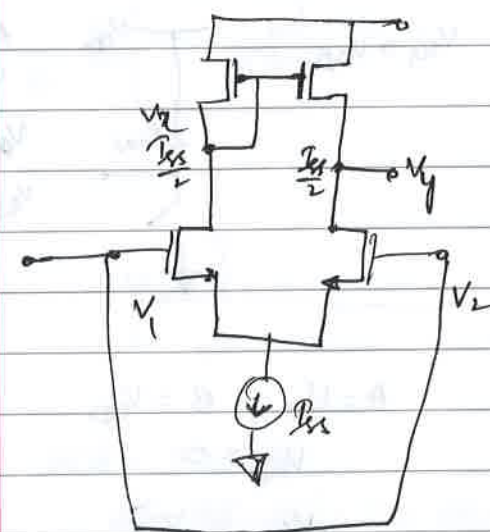 Vx
Iss/2 Iss/2 Vy
V1 V2
Iss